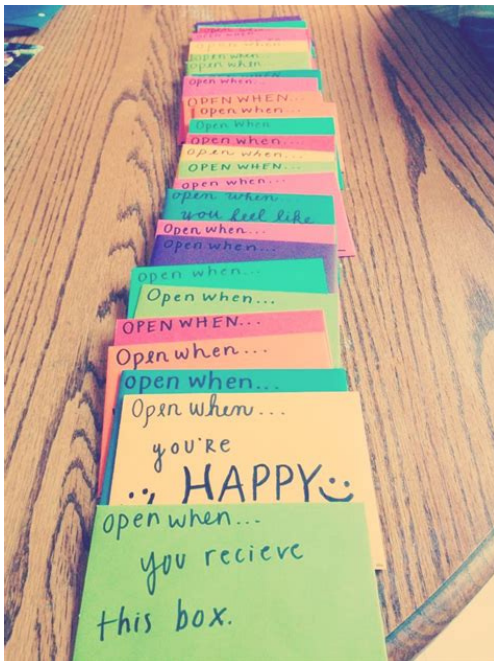 open when...
open when...
open when...
open when...
OPEN WHEN...
open when...
open when
open when...
open when...
OPEN WHEN...
open when...
open when
you feel like
open when...
open when...
open when...
Open when...
OPEN WHEN...
Open when...
Open when...
Open when...
you're
HAPPY
open when...
you recieve
this box.